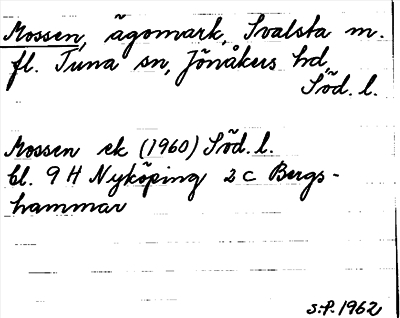 Mossen, ägomark, Svalsta m.
fl. Tuna sn, Jönåkers hd,
Söd. l.
Mossen ek (1960) Söd. l.
bl. 9 H Nyköping 2 c Bergs-
hammar
S.P. 1962